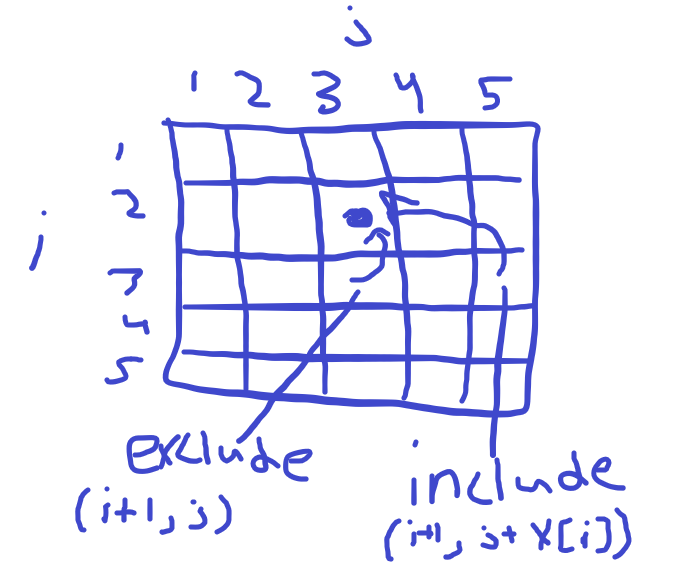 j
1 2 3 4 5
1
2
i
3
4
5
exclude
(i+1, j)
include
(i+1, j+X[i])